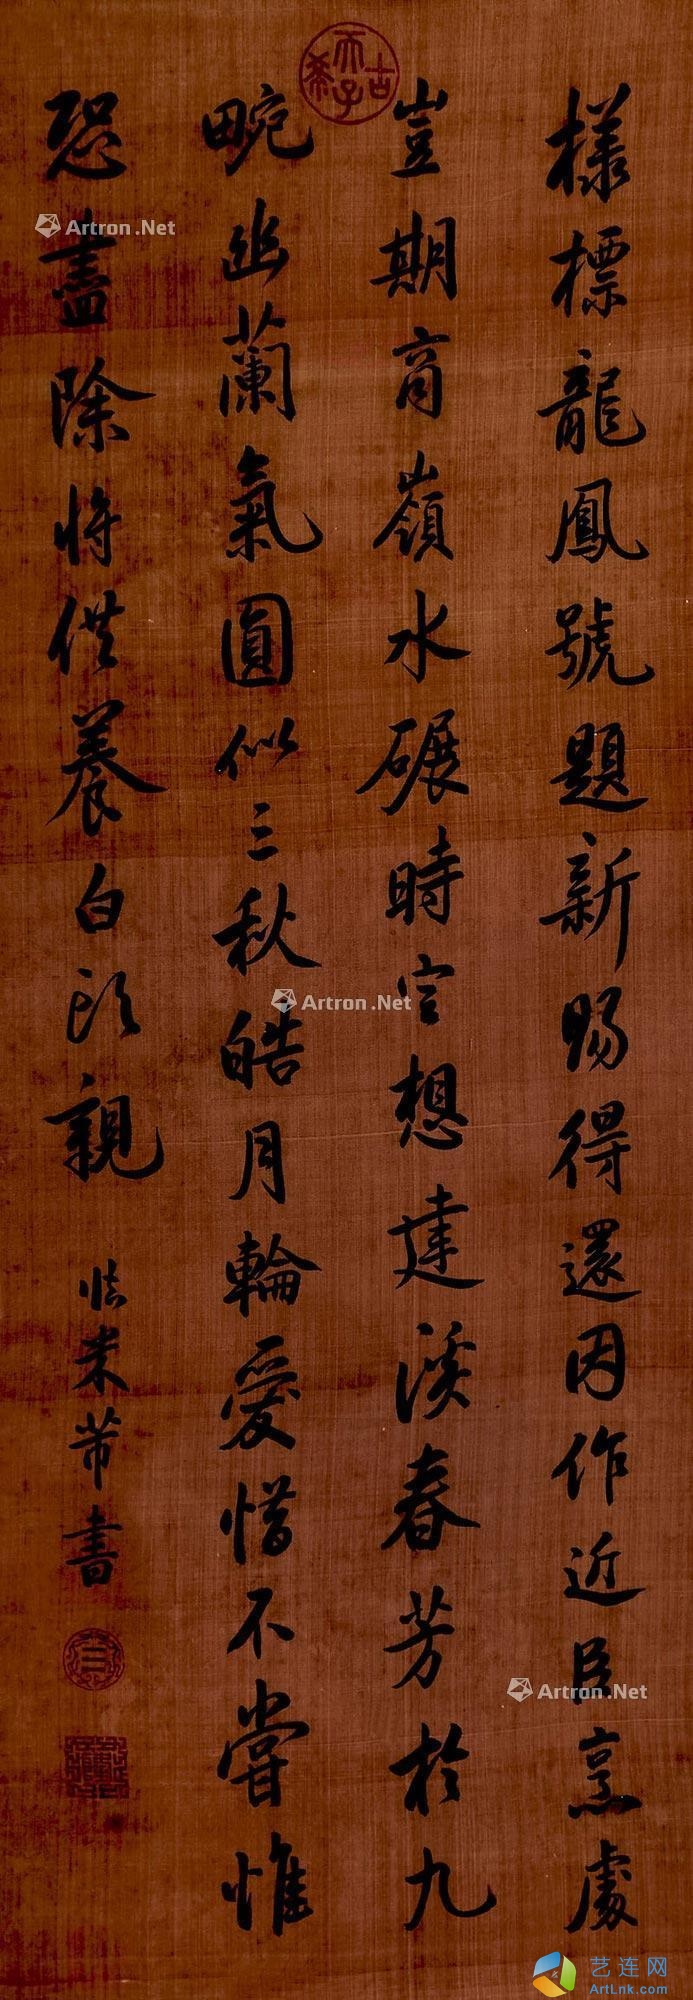 古希天子
樣標龍鳳號題新賜得還因作近臣烹處
豈期商嶺水碾時空想建溪春芳於九
畹幽蘭氣圓似三秋皓月輪愛惜不嘗惟
恐盡除將供養白頭親
臨米芾書
Artron.Net
Artron.Net
Artron.Net
Artron.Net
艺连网
ArtLnk.com